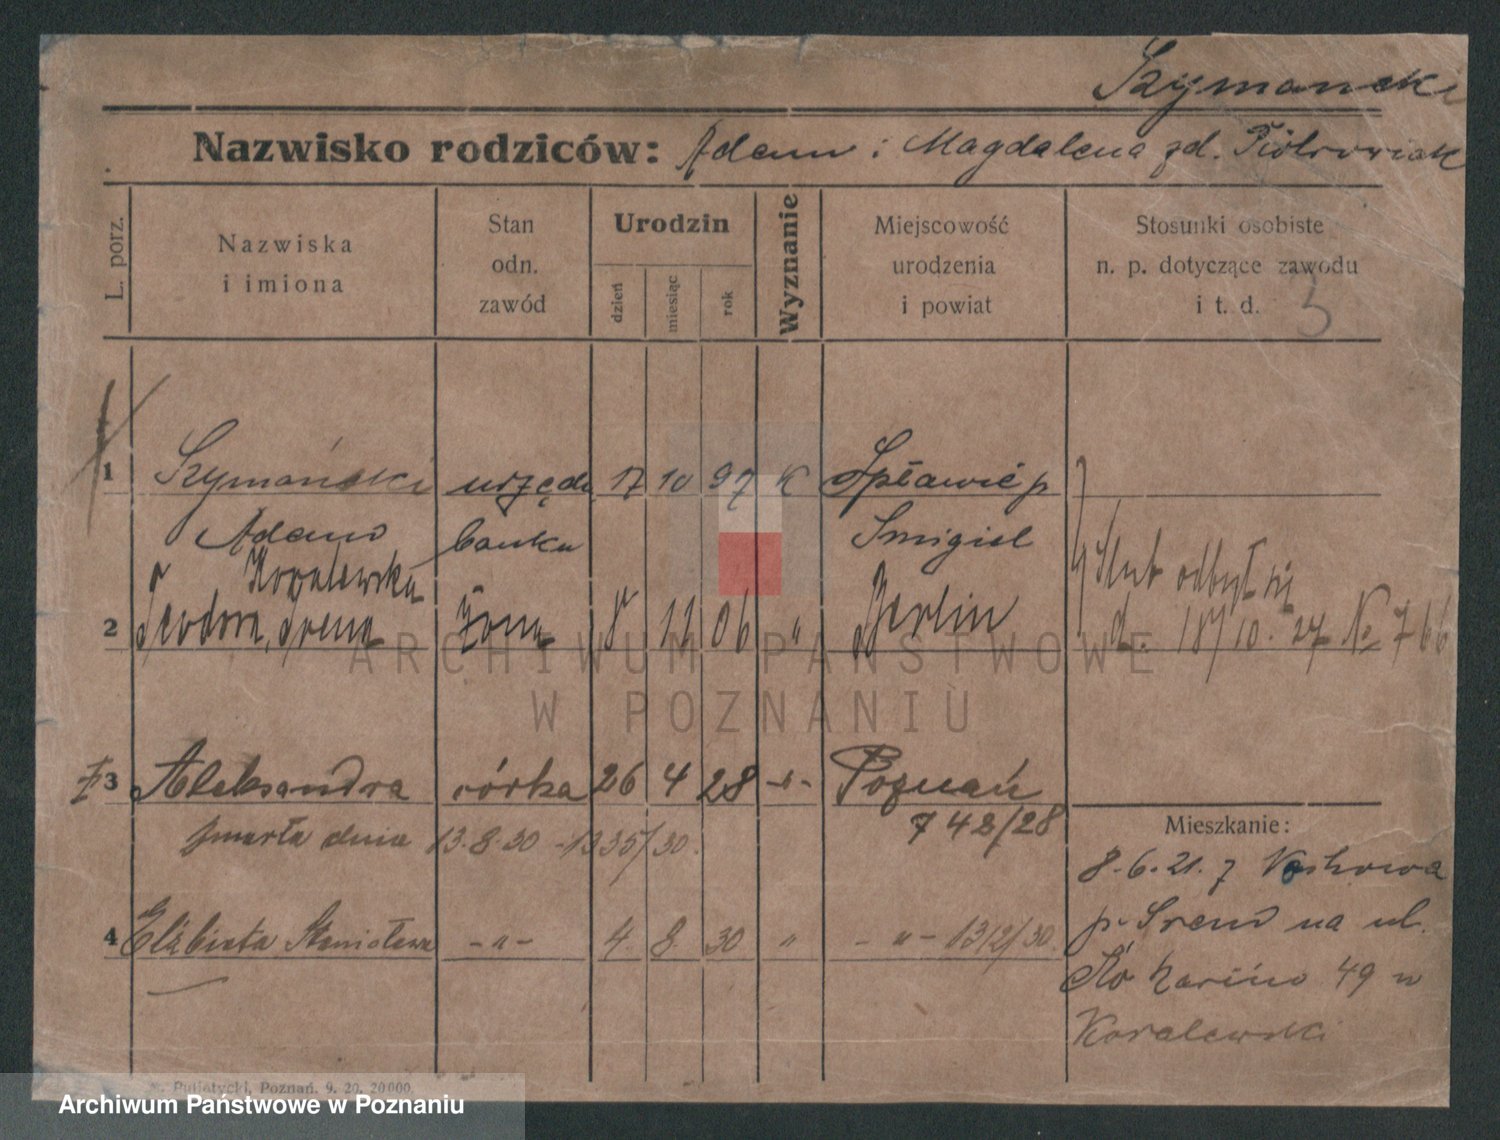 Szymanski
Nazwisko rodziców: Adam i Magdalena zd. Piotrowiak
L. porz.
Nazwiska
i imiona
Stan
odn.
zawód
Urodzin
dzień
miesiąc
rok
Wyznanie
Miejscowość
urodzenia
i powiat
Stosunki osobiste
n. p. dotyczące zawodu
i t. d.
3
1 Szymański urzędn 17 10 97 K Spławie p
Adam banku Smigiel
Kowalewska
2 Teodora, Irena żona 8 11 06 " Berlin
Ślub odbył się
d. 18/10.27 No 766
3 Aleksandra córka 26 4 28 -"- Poznań
zmarła dnia 13.8.30 - 1335/30.
742/28
4 Elżbieta Stanisława -"- 4. 8. 30 " -"- 1312/30.
Mieszkanie:
8.6.21. z
p. Srem na ul.
49 u
Kowalewski
Putiatycki, Poznań. 9. 20. 20000.
ARCHIWUM PAŃSTWOWE
W POZNANIU
Archiwum Państwowe w Poznaniu